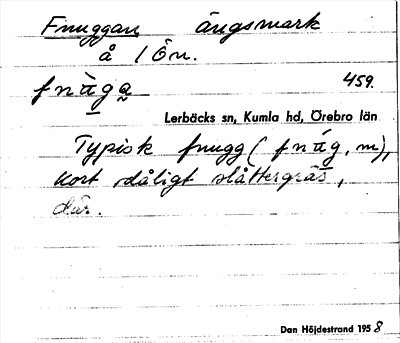 Fnuggan ängsmark
å 1 Ön.
fnùga 459.
Lerbäcks sn, Kumla hd, Örebro län
Typisk fnugg (fnúg, m),
kort dåligt slåttergräs,
där.
Dan Höjdestrand 1958